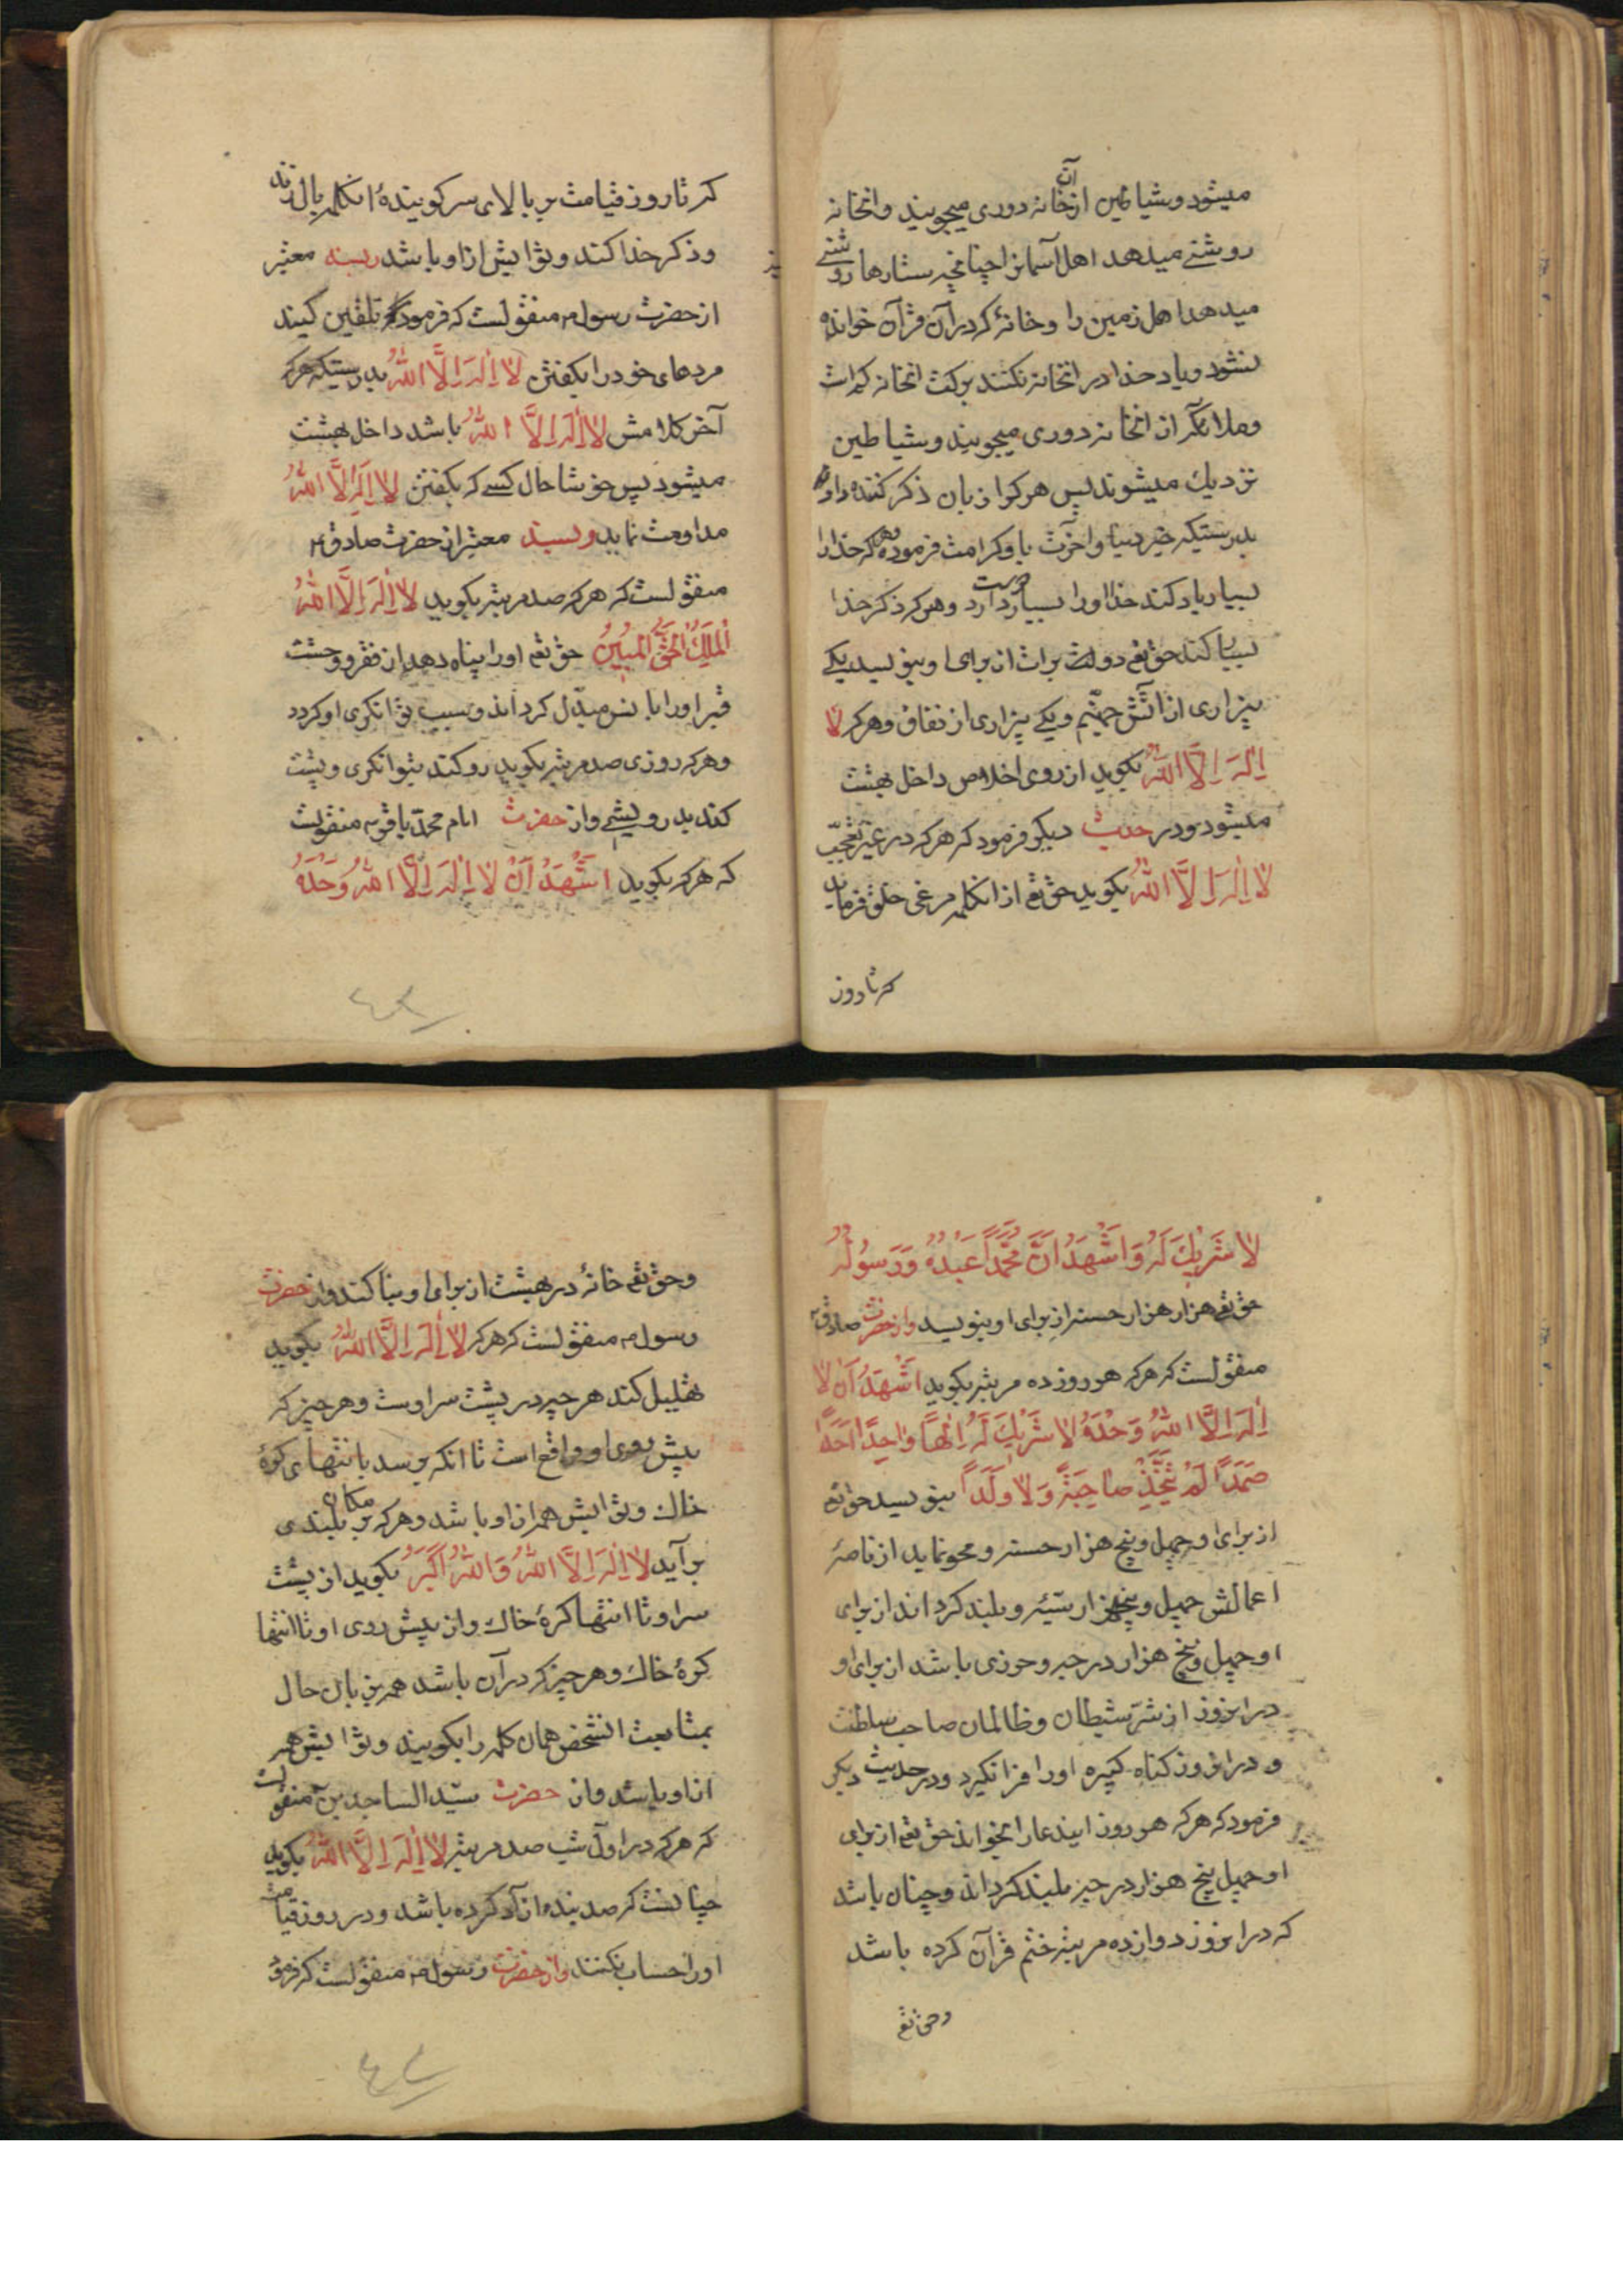 میشود وشیاطین از آن خانه دوری میجویند وانخانه
روشنی میدهد اهل آسمانرا چنانچه ستارها روشنی
میدهد اهل زمین را وخانۀ که در آن قرآن خوانده
نشود ویاد خدا در انخانه نکنند برکت انخانه کم است
وملائکه از انخانه دوری میجویند وشیاطین
نزدیك میشوند پس هرکرا زبان ذکر کننده داد
بدرستیکه خیر دنیا واخرت باو کرامت فرموده که خدا را
بسیار یاد کند خدا اورا بسیار دوست دارد وهرکه ذکر خدا
بسیار کند حق تع دو برات از برای او بنویسد یکی
بیزاری از آتش جهنّم ویکی بیزاری از نفاق وهرکه لا
اِلٰهَ اِلَّا اللّٰهُ بکوید از روی اخلاص داخل بهشت
میشود ودر حدیث دیکر فرمود که هرکه در غیر تعجّب
لا اِلٰهَ اِلَّا اللّٰهُ بکوید حق تع از انکلمه مرغی خلق فرماید
که تا روز
که تا روز قیامت بر بالای سر کویندۀ انکلمه بال زند
وذکر خدا کند وثوابش از او باشد وبسند معتبر
از حضرت رسول م منقولست که فرمود که تلقین کنید
مردهای خود را بکفتن لا اِلٰهَ اِلَّا اللّٰهُ بدرستیکه هرکه
آخر کلامش لا اِلٰهَ اِلَّا اللّٰهُ باشد داخل بهشت
میشود پس خوشا حال کسی که بکفتن لا اِلٰهَ اِلَّا اللّٰهُ
مداومت نماید وبسند معتبر از حضرت صادق ع
منقولست که هرکه صد مرتبه بکوید لا اِلٰهَ اِلَّا اللّٰهُ
اَلْمَلِكُ الْحَقُّ الْمُبینُ حق تع اورا پناه دهد از فقر ووحشت
قبر اورا بانس مبدّل کرداند وسبب توانکری او کردد
وهرکه روزی صد مرتبه بکوید رو کند بتوانکری وپشت
کند بدرویشی واز حضرت امام محمّد باقر ع منقولست
که هرکه بکوید اَشْهَدُ اَنْ لا اِلٰهَ اِلَّا اللّٰهُ وَحْدَهُ
لا شَریكَ لَهُ وَاَشْهَدُ اَنَّ مُحَمَّداً عَبْدُهُ وَرَسُولُهُ
حق تع هزار هزار حسنه از برای او بنویسد واز حضرت صادق ع
منقولست که هرکه هر روز ده مرتبه بکوید اَشْهَدُ اَنْ لا
اِلٰهَ اِلَّا اللّٰهُ وَحْدَهُ لا شَریْكَ لَهُ اِلٰهاً واحِداً اَحَداً
صَمَداً لَمْ یَتَّخِذْ صاحِبَةً وَلا وَلَداً بنویسد حق تع
از برای او چهل وپنج هزار حسنه ومحو نماید از نامۀ
اعمالش چهل وپنجهزار سیّئه وبلند کرداند از برای
او چهل وپنج هزار درجه وحرزی باشد از برای او
در انروز از شرّ شیطان وظالمان صاحب سلطنت
ودر انروز کناه کبیره اورا فرا نکیرد ودر حدیث دیکر
فرمود که هرکه هر روز ایندعا را بخواند حق تع از برای
او چهل پنج هزار درجه بلند کرداند وچنان باشد
که در انروز دوازده مرتبه ختم قرآن کرده باشد
وحق تع
وحق تع خانۀ در بهشت از برای او بنا کند واز حضرت
رسول م منقولست که هرکه لا اِلٰهَ اِلَّا اللّٰهُ بکوید
تهلیل کند هرچه در پشت سر اوست وهر چیز که
پیش روی او واقع است تا انکه برسد بانتهای کرۀ
خاك وثوابش همه از او باشد وهرکه بر مکان بلندی
بر آید لا اِلٰهَ اِلَّا اللّٰهُ وَاللّٰهُ اَکْبَرُ بکوید از پشت
سر او تا انتها کرۀ خاك واز پیش روی او تا انتها
کرۀ خاك وهر چیز که در آن باشد همه بزبان حال
بمتابعت انشخص همان کلمه را بکویند وثوابش همه
از او باشد واز حضرت سیّد الساجدین ع منقولست
که هرکه در اوّل شب صد مرتبه لا اِلٰهَ اِلَّا اللّٰهُ بکوید
چنانست که صد بنده ازاد کرده باشد ودر روز قیامت
اورا حساب نکنند واز حضرت رسول م منقولست که فرمود